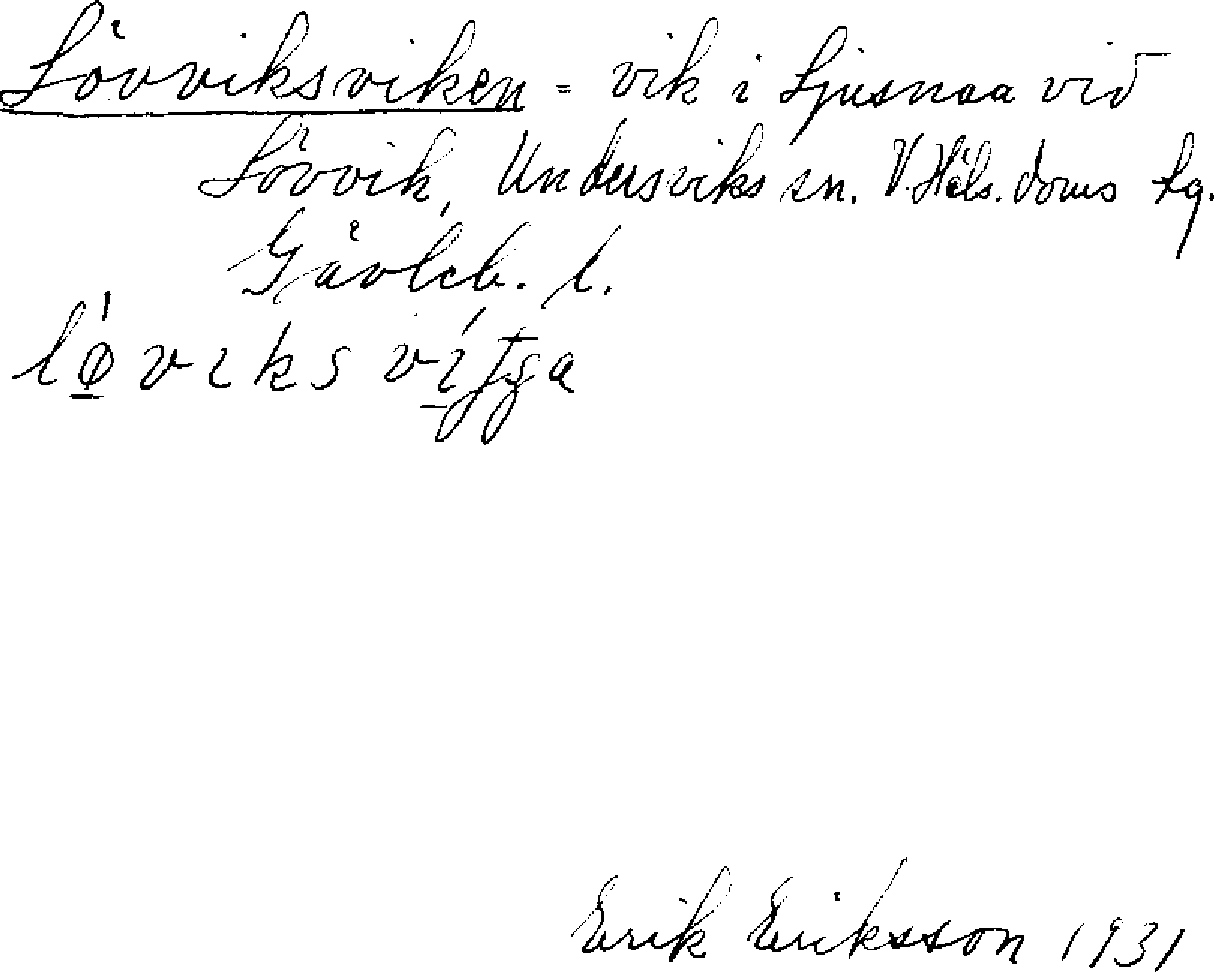 Lövviksviken = vik i Ljusnaa vid
Lövvik, Undersviks sn. V. Häls. doms lg.
Gävleb. l.
Erik Eriksson 1931